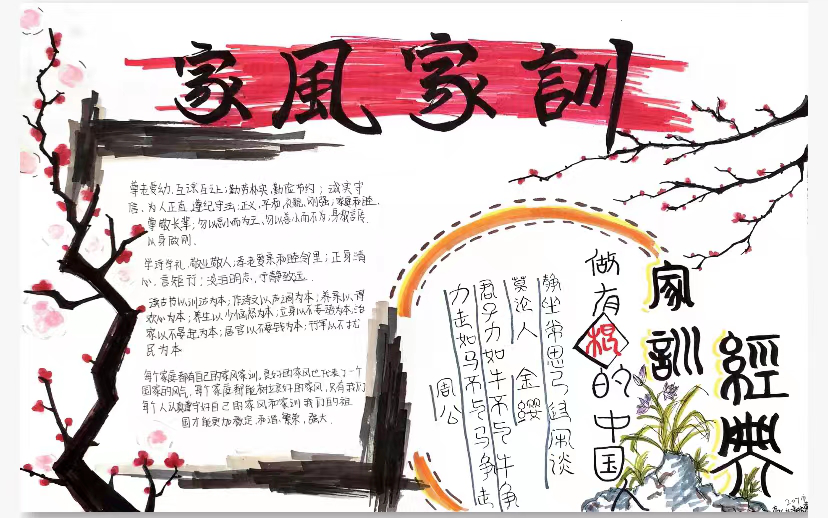 家風家訓
尊老爱幼,互谅互让;勤劳朴实,勤俭节约;诚实守
信,为人正直,遵纪守法;正义,平和,礼貌,刚强;家庭和睦,
尊敬长辈;勿以恶小而为之,勿以善小而不为;
以身
学诗学礼,敬业敬人;孝老爱亲和睦邻里;正身清
心,言矩行;淡泊明志,宁静致远.
读古书以训诂为本;作诗文以声调为本;养亲以得
欢心为本;养生以少恼怒为本;立身以不妄语为本;治
家以不晏起为本;居官以不要钱为本;行军以不扰
民为本
每个家庭都有自己的家风家训,良好的家风也代表了一个
国家的风气,每个家庭都能树立良好的家风,只有我们
每个人认真遵守好自己的家风和家训我们的祖
国才能更加稳定,和谐,繁荣,强大.
家訓
經典
做有根的中国人
静坐常思己过闲谈
莫论人 金缨
君子力如牛不与牛争
力走如马不与马争走
周公